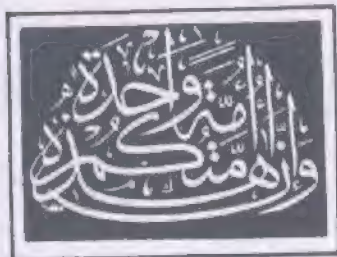 وَإِنَّ هَذِهِ أُمَّتُكُمْ أُمَّةً وَاحِدَةً